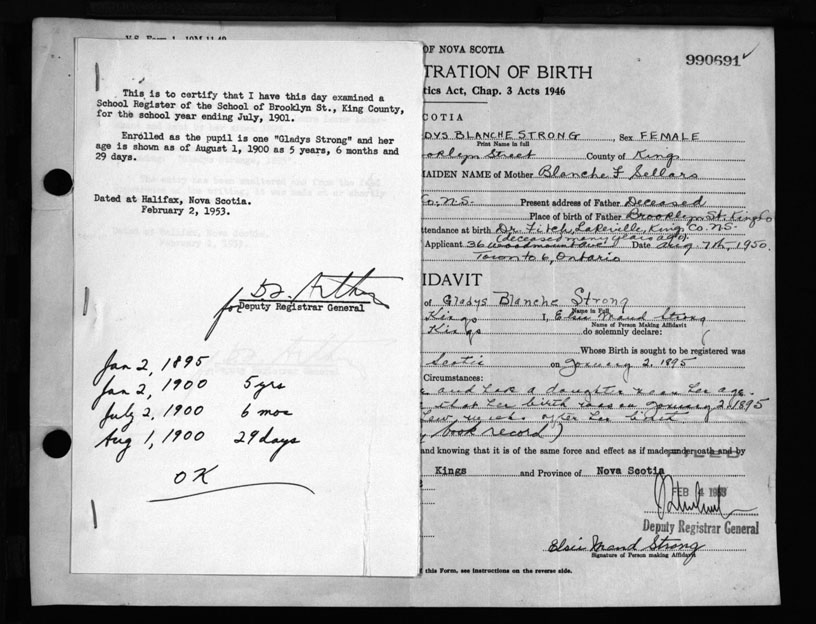 V.S. Form 1. 10M 11-49
This is to certify that I have this day examined a
School Register of the School of Brooklyn St., King County,
for the school year ending July, 1901.
Enrolled as the pupil is one "Gladys Strong" and her
age is shown as of August 1, 1900 as 5 years, 6 months and
29 days.
Dated at Halifax, Nova Scotia.
February 2, 1953.
for
Deputy Registrar General
Jan 2, 1895
Jan 2, 1900 5 yrs
July 2, 1900 6 mos
Aug 1, 1900 29 days
OK
OF NOVA SCOTIA
990691
TRATION OF BIRTH
tics Act, Chap. 3 Acts 1946
COTIA
DYS BLANCHE STRONG, Sex FEMALE
Print Name in full
ooklyn Street County of Kings
MAIDEN NAME of Mother Blanche F Sellars
Co; N.S. Present address of Father Deceased
Place of birth of Father Brooklyn St. Kings Co
ttendance at birth Dr. Fitch, Lakeville, King Co. N.S.
(deceased many years ago)
Applicant 36 Woodmount Ave Date Aug 7th, 1950.
Toronto 6, Ontario
IDAVIT
of Gladys Blanche Strong
Name in Full
Kings I, Elsie Maud Strong
Name of Person Making Affidavit
Kings do solemnly declare:
Whose Birth is sought to be registered was
Scotia on January 2, 1895
Circumstances:
and had a daughter near her age.
that her birth was on January 2, 1895
few weeks after her birth
book record)
and knowing that it is of the same force and effect as if made under oath and by
Kings and Province of Nova Scotia
FEB 4 1953
Deputy Registrar General
Elsie Maud Strong
Signature of Person making Affidavit
this Form, see instructions on the reverse side.